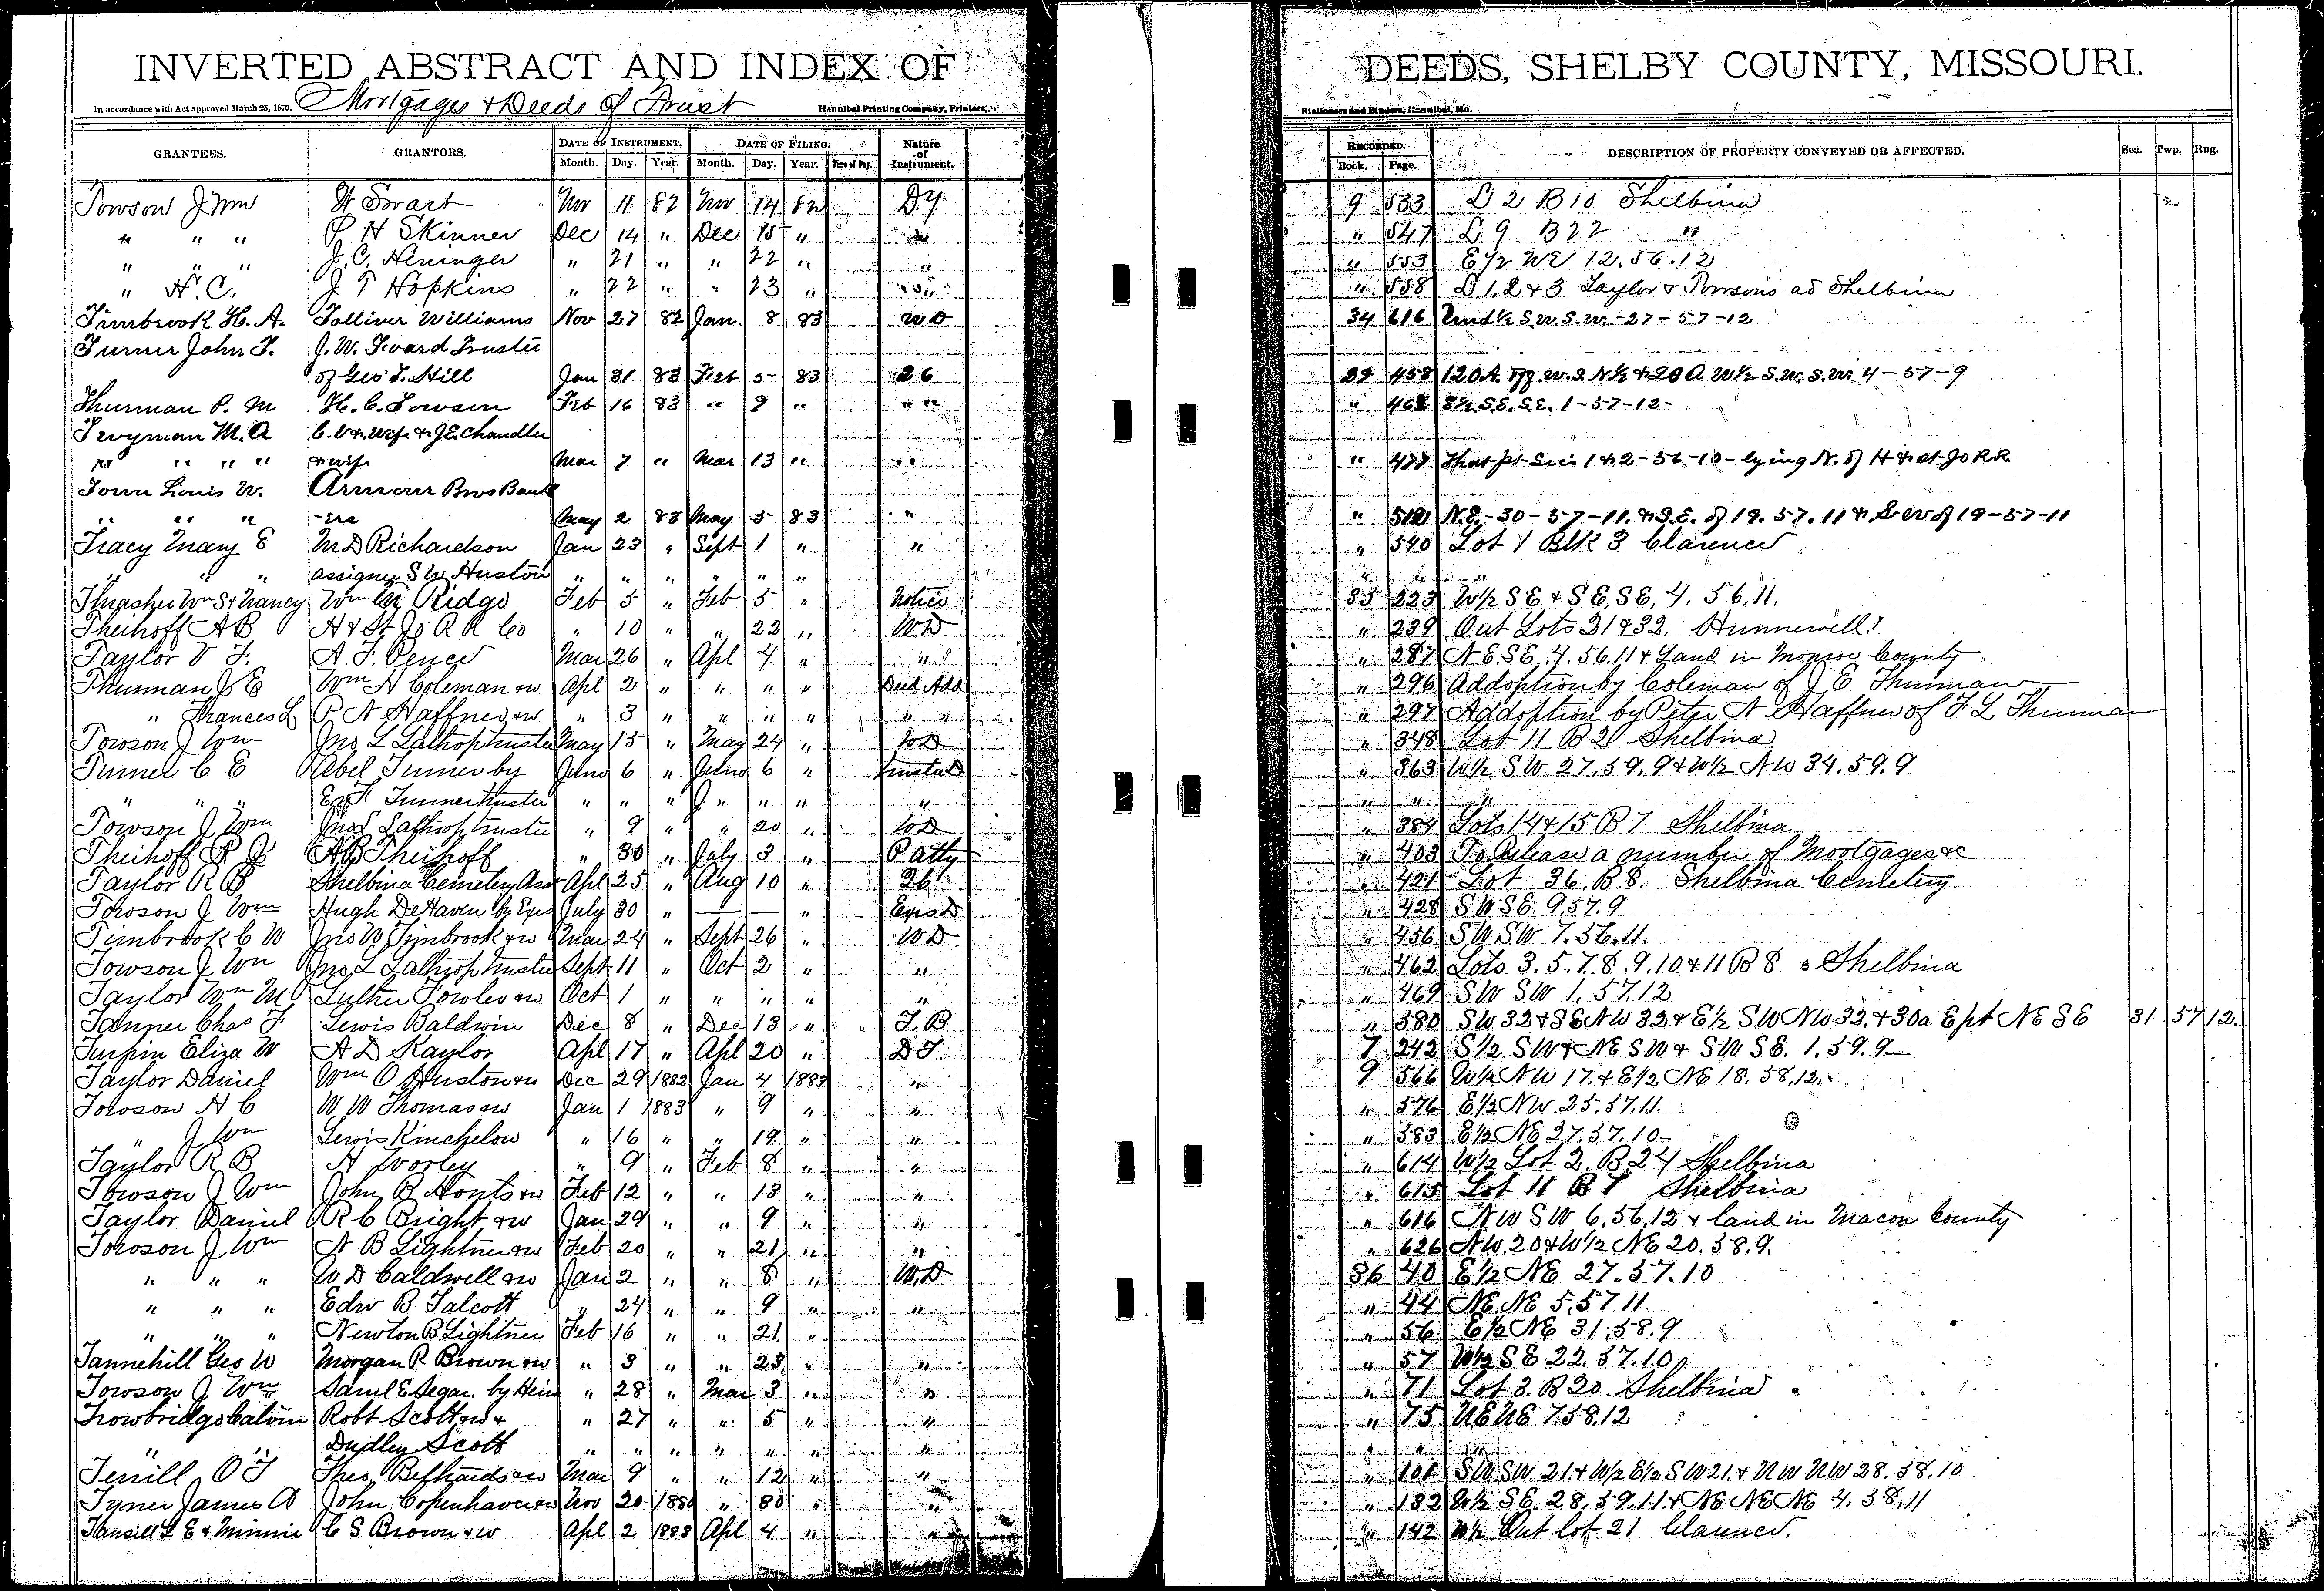 INVERTED ABSTRACT AND INDEX OF DEEDS, SHELBY COUNTY, MISSOURI.
In accordance with Act approved March 25, 1870. Mortgages & Deeds of Trust Hannibal Printing Company, Printers, Stationers and Binders, Hannibal, Mo.
GRANTEES. GRANTORS. DATE OF INSTRUMENT. DATE OF FILING. Nature of Instrument. RECORDED. DESCRIPTION OF PROPERTY CONVEYED OR AFFECTED. Sec. Twp. Rng.
Month. Day. Year. Month. Day. Year. Time of Day. Book. Page.
Towson J Wm Swart Nov 11 82 Nov 14 82 9 533 L 2 B 10 Shelbina
" " " P H Skinner Dec 14 " Dec 15 " " " 547 L 9 B 22 "
" " " J. C. Heninger " 21 " " 22 " " " 553 E 1/2 NE 12.56.12
" H. C. J T Hopkins " 22 " " 23 " " " 558 L 1, 2 & 3 Taylor & Towsons ad Shelbina
Timbrook H. A. Tolliver Williams Nov 27 82 Jan. 8 83 WD 34 616 Und 1/2 S.W. S.W. -27-57-12
Turner John T. J. W. Foard Trustee
of Geo T. Hill Jan 31 83 Feb 5 83 26 39 458 120 A. W 1/2 S.W. S.W. 4-57-9
Thurman P. M H. C. Towson Feb 16 83 " 9 " " " S.E. S.E. 1-57-12-
Perryman M. A C. V & Wife & J.E. Chandler
" " " " & wife Mar 7 " Mar 13 " " " 477 That pt Secs 1 & 2-56-10-lying N. of H & St Jo R R
Town Louis W. Armour Bros Bank
" " " -ers May 2 83 May 5 83 " " N.E.-30-57-11. & S.E. of 19.57.11 & S W of 19-57-11
Tracy Mary E M D Richardson Jan 23 " Sept 1 " " " 540 Lot 1 Blk 3 Clarence
" " " assignee S W Huston " " " " " "
Thrasher Wm S & Nancy Wm M Ridge Feb 5 " Feb 5 " Notice 35 223 W 1/2 S E & S E, S E, 4. 56.11.
Theihoff A B H & St Jo R R Co " 10 " " 22 " WD " 239 Out Lots 21 & 32. Hunnewell
Taylor V F. A. F. Pence Mar 26 " Apl 4 " " " 287 N E. S E. 4. 56.11 & Land in Monroe County
Thurman J E Wm H Coleman & w Apl 2 " " " " Deed Add " 296 Addoption by Coleman of J E Thurman
" Frances L P N Haffner & w " 3 " " " " " " 297 Addoption by Peter N Haffner of F L Thurman
Towson J Wm Jno L Lathrop trustee May 15 " May 24 " WD " 348 Lot 11 B 2 Shelbina
Turner C E Abel Turner by June 6 " June 6 " Trustee D " 363 W 1/2 SW 27.59.9 & W 1/2 NW 34.59.9
" " " Turner trustee " " " " " " " " "
Towson J Wm Jno L Lathrop trustee " 9 " " 20 " WD " 384 Lots 14 & 15 B 7 Shelbina
Theihoff A B Theihoff " 30 " July 3 " P Atty " 403 To Release a number of Mortgages &c
Taylor R B Shelbina Cemetery Ass Apl 25 " Aug 10 " 26 " 421 Lot 36 B 8. Shelbina Cemetery
Towson J Wm Hugh DeHaven by Exrs July 30 " — — " Exrs D " 428 S W S E. 9.57.9
Timbrook C W Jno W Timbrook & w Mar 24 " Sept 26 " WD " 456 S W S W 7.56.11.
Towson J Wm Jno L Lathrop trustee Sept 11 " Oct 2 " " " 462 Lots 3.5.7.8.9.10 & 11 B 8 Shelbina
Taylor Wm M Luther Fowler & w Oct 1 " " " " " " 469 S W S W 1.57.12
Tanner Chas F Lewis Baldwin Dec 8 " Dec 13 " T. B " 580 SW 32 & S E NW 32 & E 1/2 SW NW 32. & 30a E pt NE SE 31 57 12.
Turpin Eliza W A D Kaylor Apl 17 " Apl 20 " D T. 7 242 S 1/2 SW & NE SW & SW SE. 1.59.9
Taylor Daniel Wm O Huston & w Dec 29 1882 Jan 4 1883 " 9 566 W 1/2 NW 17. & E 1/2 NE 18.58.12.
Towson H C W W Thomas & w Jan 1 1883 " 9 " " " 576 E 1/2 NW 25.57.11.
" J Wm Lewis Kinchelow " 16 " " 19 " " " 583 E 1/2 NE 27.57.10
Taylor R B H Worley " 9 " Feb 8 " " " 614 W 1/2 Lot 2. B 24 Shelbina
Towson J Wm John B Honts & w Feb 12 " " 13 " " " 615 Lot 11 B 7 Shelbina
Taylor Daniel R C Bright & w Jan 29 " " 9 " " " 616 N W S W 6.56.12 & land in Macon County
Towson J Wm N B Lightner & w Feb 20 " " 21 " " " 626 NW 20 & W 1/2 NE 20.58.9.
" " " W D Caldwell & w Jan 2 " " 8 " W.D 36 40 E 1/2 NE 27.57.10
" " " Edw B Talcott " 24 " " 9 " " " 44 NE. NE 5.57.11.
" " " Newton B Lightner Feb 16 " " 21 " " 56 E 1/2 NE 31.58.9
Tannehill Geo W Morgan R Brown & w " 3 " " 23 " " " 57 W 1/2 S E 22.57.10
Towson J Wm Saml E Segar by Heirs " 28 " Mar 3 " " " 71 Lot 3. B 20. Shelbina
Trowbridge Calvin Robt Scott & w & " 27 " " 5 " " " 75 NE NE 7.58.12
" " Dudley Scott " " " " " " " "
Terrill O T Theo. & w Mar 9 " " 12 " " " 101 SW SW 21. & W 1/2 E 1/2 SW 21. & NW NW 28.58.10
Tyner James A John Copenhaver & w Nov 20 1880 " 30 " " " 132 W 1/2 SE. 28.59.11 & NE NE NE 4.58.11
Tansill L E & Minnie C S Brown & w Apl 2 1883 Apl 4 " " " 142 W 1/2 Out lot 21 Clarence.